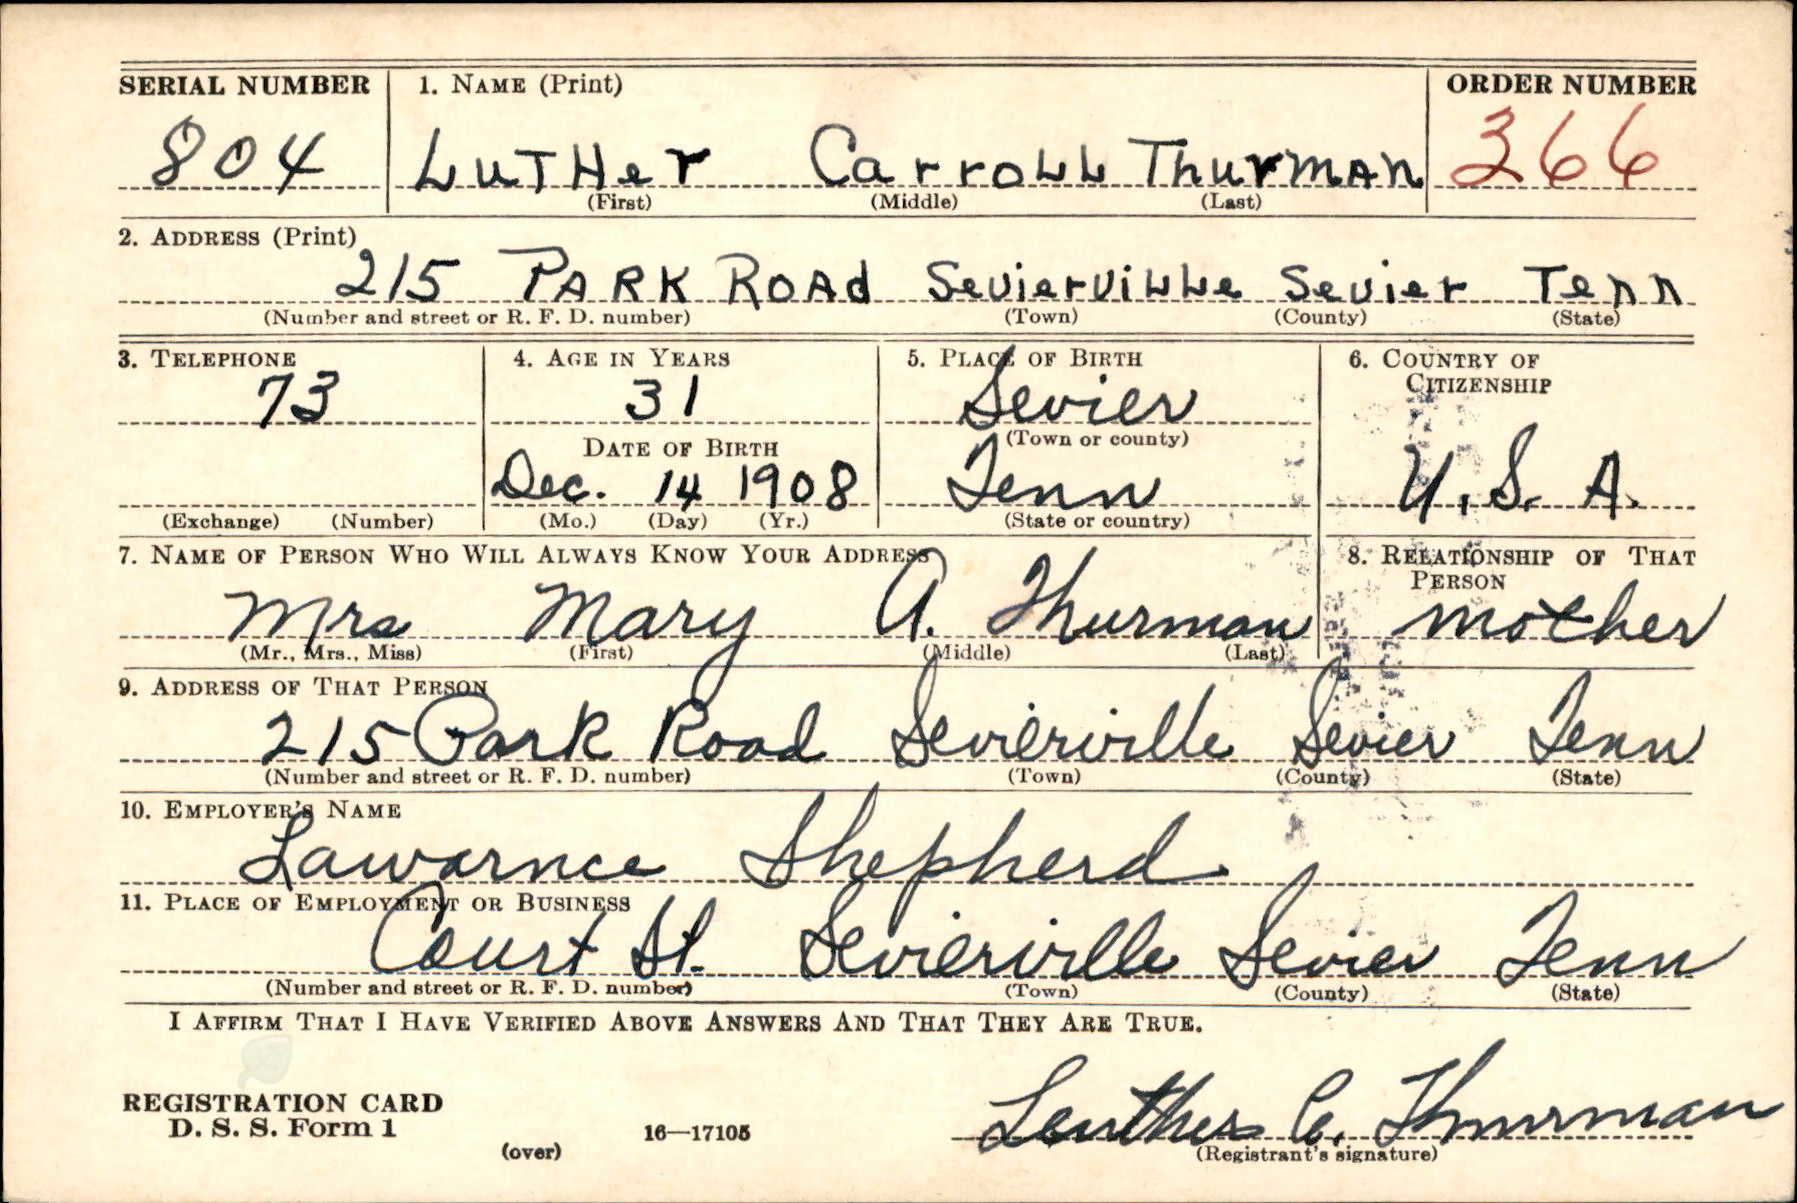 SERIAL NUMBER 1. NAME (Print) ORDER NUMBER
804 LUTHer CarroLL ThurmAn 366
(First) (Middle) (Last)
2. ADDRESS (Print)
215 PARK ROAd SevierviLLe Sevier Tenn
(Number and street or R. F. D. number) (Town) (County) (State)
3. TELEPHONE 4. AGE IN YEARS 5. PLACE OF BIRTH 6. COUNTRY OF CITIZENSHIP
73 31 Sevier
DATE OF BIRTH (Town or county)
Dec. 14 1908 Tenn U. S. A.
(Exchange) (Number) (Mo.) (Day) (Yr.) (State or country)
7. NAME OF PERSON WHO WILL ALWAYS KNOW YOUR ADDRESS 8. RELATIONSHIP OF THAT PERSON
Mrs Mary A. Thurman mother
(Mr., Mrs., Miss) (First) (Middle) (Last)
9. ADDRESS OF THAT PERSON
215 Park Road Sevierville Sevier Tenn
(Number and street or R. F. D. number) (Town) (County) (State)
10. EMPLOYER'S NAME
Lawarnce Shepherd
11. PLACE OF EMPLOYMENT OR BUSINESS
Court St. Sevierville Sevier Tenn
(Number and street or R. F. D. number) (Town) (County) (State)
I AFFIRM THAT I HAVE VERIFIED ABOVE ANSWERS AND THAT THEY ARE TRUE.
REGISTRATION CARD
D. S. S. Form 1
(over) 16—17105
Luther C. Thurman
(Registrant's signature)